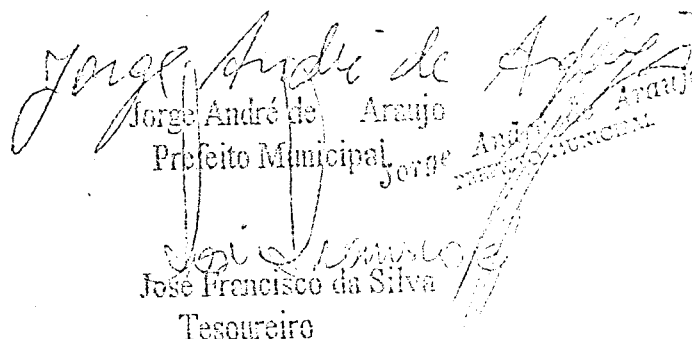 Jorge André de Araujo
Jorge André de Araujo
Prefeito Municipal
Jorge André de Araujo
PREFEITO MUNICIPAL
José Francisco da Silva
Tesoureiro